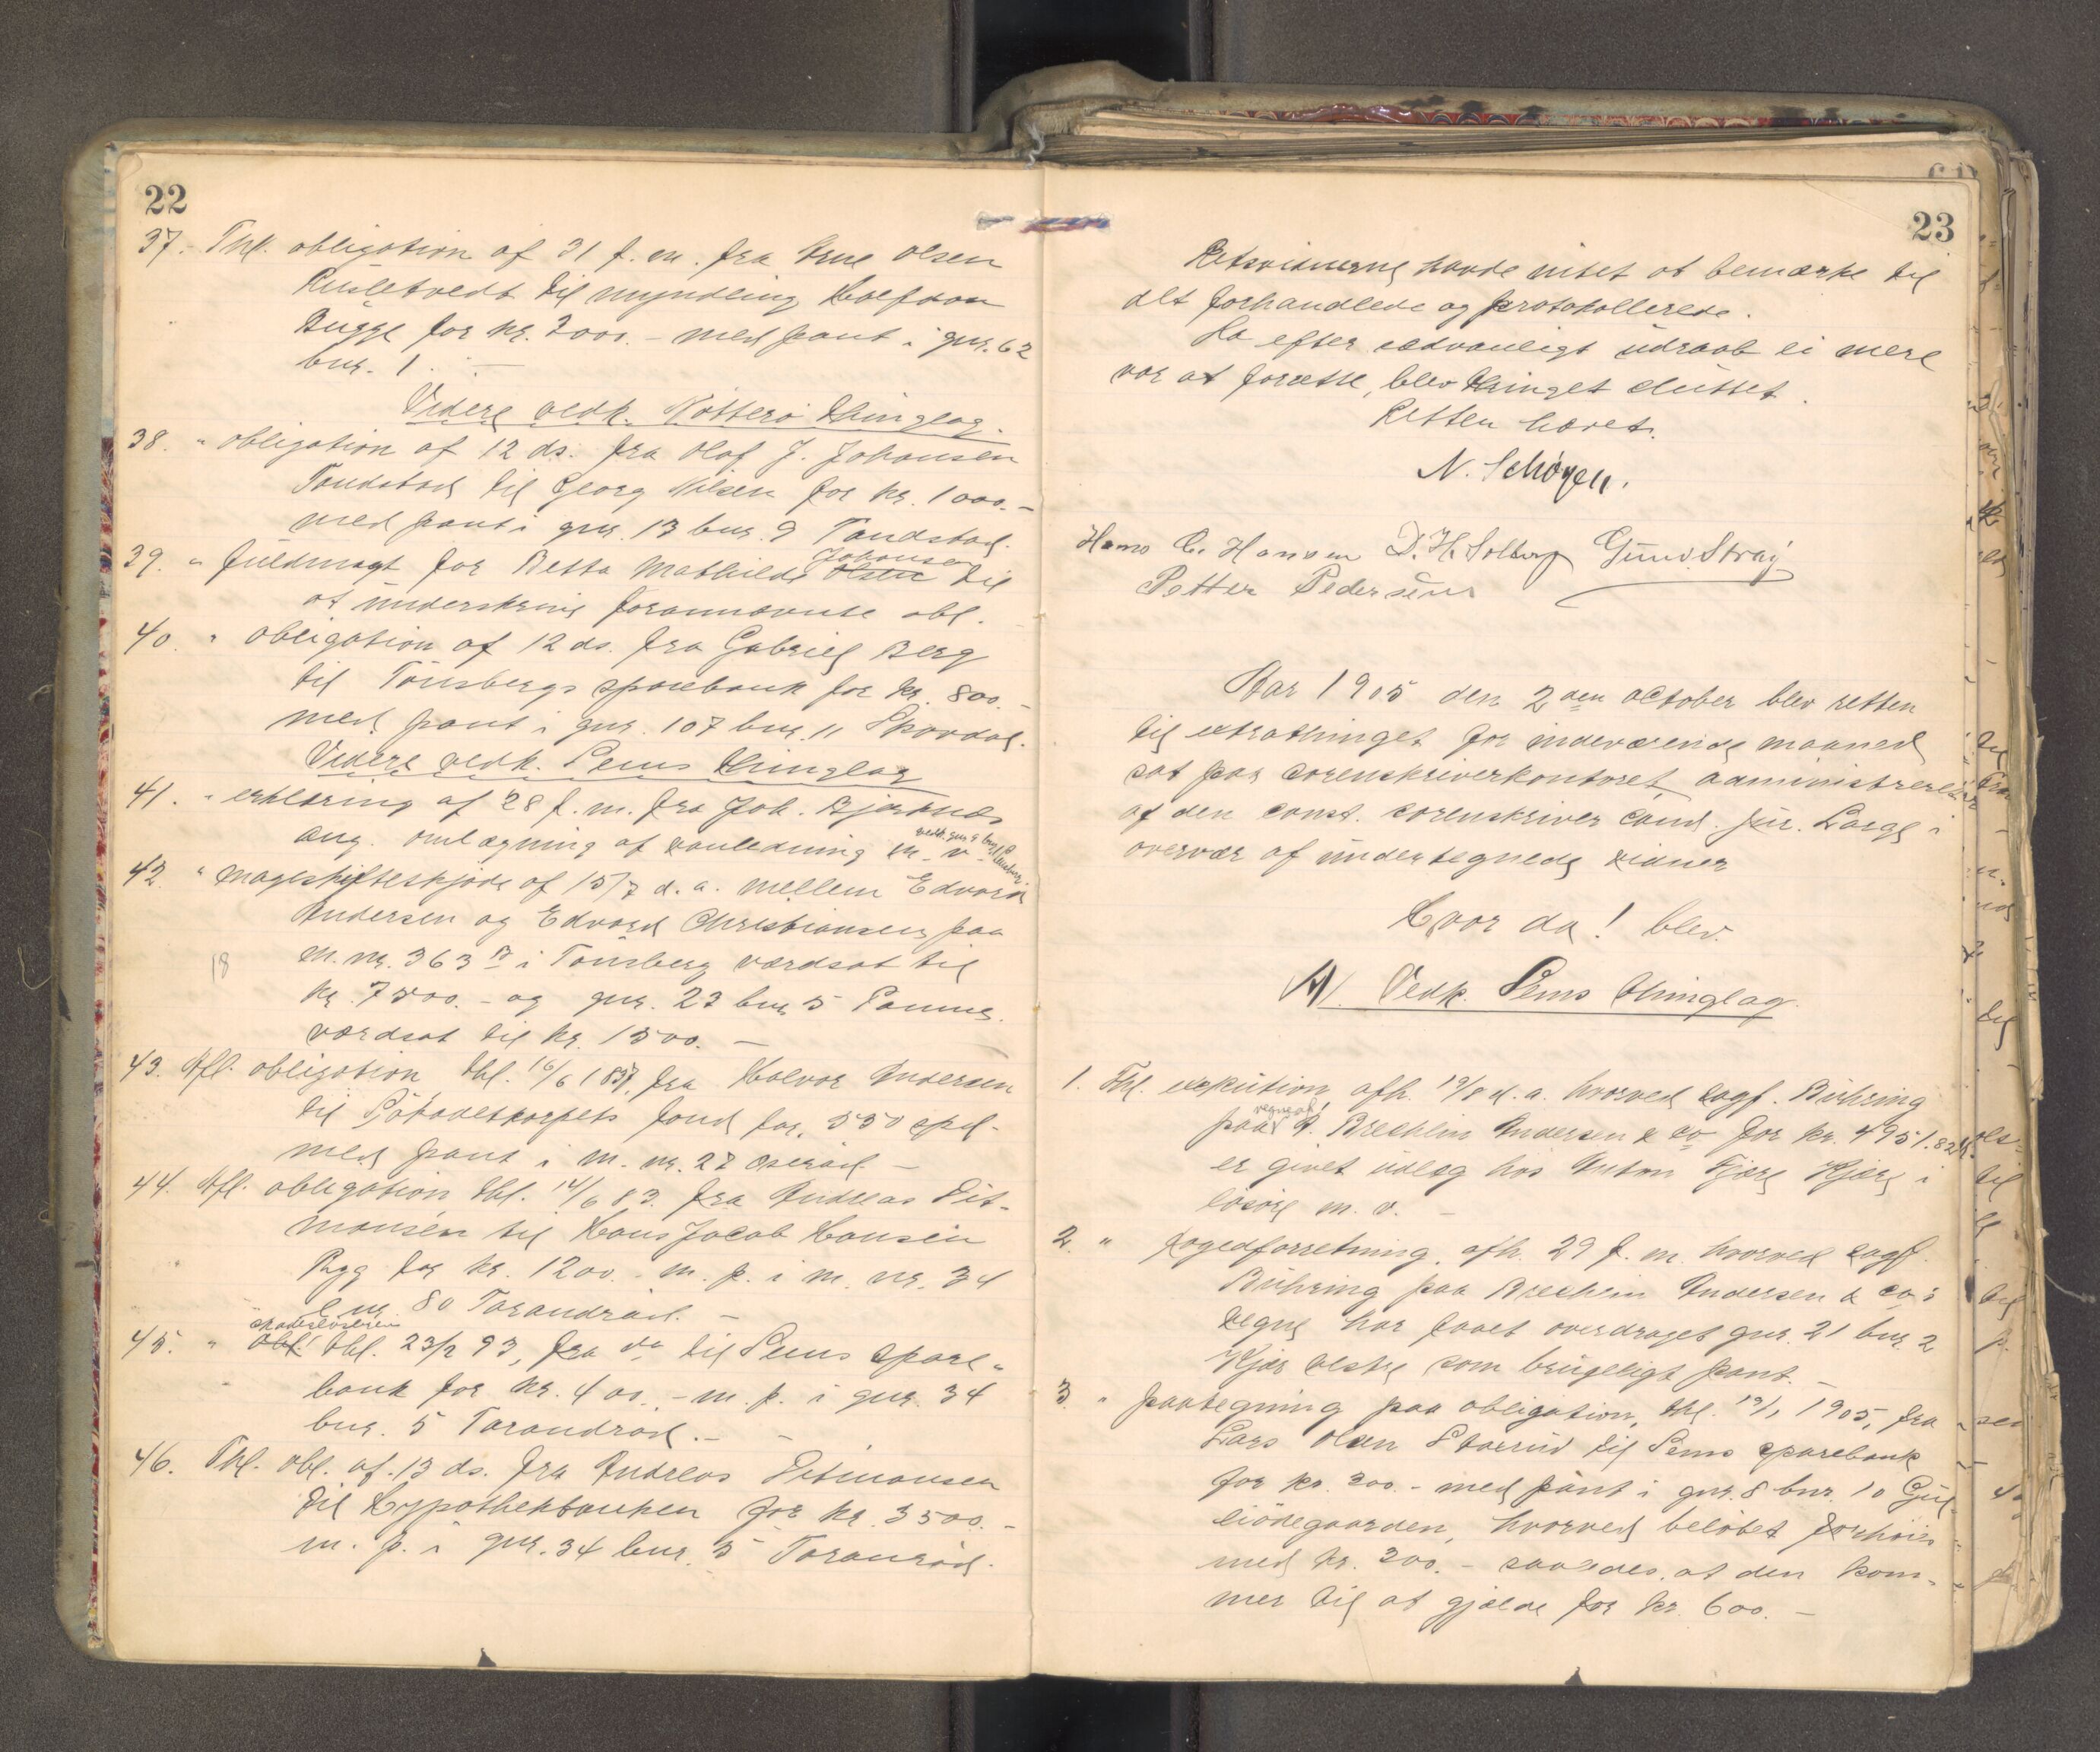 22
37. Thl. obligation af 31 f. m. fra Arne Olsen
Rusletvedt til myndling Halfdan
Bugge for kr. 2000.- med pant i gnr. 62
bnr. 1. —
Videre vedk. Nøtterø thinglag.
38. " obligation af 12 ds. fra Olaf J. Johansen
Tandstad til Georg Nilsen for kr. 1000.-
med pant i gnr. 13 bnr. 9 Tandstad.
Johansen
39. " fuldmagt for Betta Mathilde Olsen til
at underskrive forannævnte obl.
40. " obligation af 12 ds. fra Gabriel Berg
til Tønsbergs sparebank for kr. 800.-
med pant i gnr. 107 bnr. 11 Skovdal.
Videre vedk. Sems thinglag
41. " erklæring af 28 f. m. fra Joh. Bjerknes
ang. omlægning af vanledning m. v.
42. " mageskifteskjøde af 15/7 d. a. mellem Edvard
Andersen og Edvard Christiansen paa
18 m. nr. 363 B i Tønsberg værdsat til
kr. 7500.- og gnr. 23 bnr. 5
værdsat til kr. 1500. —
43. Afl. obligation, thl. 16/6 1857, fra Halvor Andersen
til Søkadetkorpets fond for 550 spd.
med pant i m. nr. 27 Oserød. —
44. Afl. obligation thl. 14/6 83. fra Andreas Dit-
mansen til Hans Jacob Hansen
Ryg for kr. 1200.- m. p. i m. nr. 34
l. nr. 80 Tarandrød. —
skadesløsbrev
45. " obl. thl. 23/2 93, fra do til Sems spare-
bank for kr. 400.- m. p. i gnr. 34
bnr. 5 Tarandrød. — —
46. Thl. obl. af 13 ds. fra Andreas Ditmansen
til Hypothekbanken for kr. 3500.-
m. p. i gnr. 34 bnr. 5 Taranrød.
23
Retsvidnerne havde intet at bemærke til
det forhandlede og protokollerede.
Da efter sædvanligt udraab ei mere
var at foretage, blev thinget sluttet.
Retten hævet.
N. Schøyen.
Hans C. Hansen D. H. Solberg Gunv. Straÿ
Petter Pedersen
Aar 1905 den 2den october blev retten
til extrathinget for indeværende maaned
sat paa sorenskriverkontoret, administreret
af den const. sorenskriver cand. jur. Lange i
overvær af undertegnede vidner
Hvor da! blev.
A/. Vedk. Sems thinglag.
1. Thl. exekution, afh. 19/8 d. a. hvorved sagf. Bühring
vegne af
paa D. Brechlin Andersen & co for kr. 4951.82
er givet udlæg hos Anton Fjære Kjære i
løsøre m. v. —
2. " fogedforretning, afh. 29 f. m. hvorved sagf.
Bühring paa Brechlin Andersen & co's
vegne har faaet overdraget gnr. 21 bnr. 2
Kjær østre som brugeligt pant. —
3. " paategning paa obligation, thl. 19/1 1905, fra
Lars Olsen Skorrud til Sems sparebank
for kr. 300.- med pant i gnr. 8 bnr. 10 Gul-
liönegaarden, hvorved beløbet forhøies
med kr. 300.- saaledes, at den kom-
mer til at gjælde for kr. 600. —